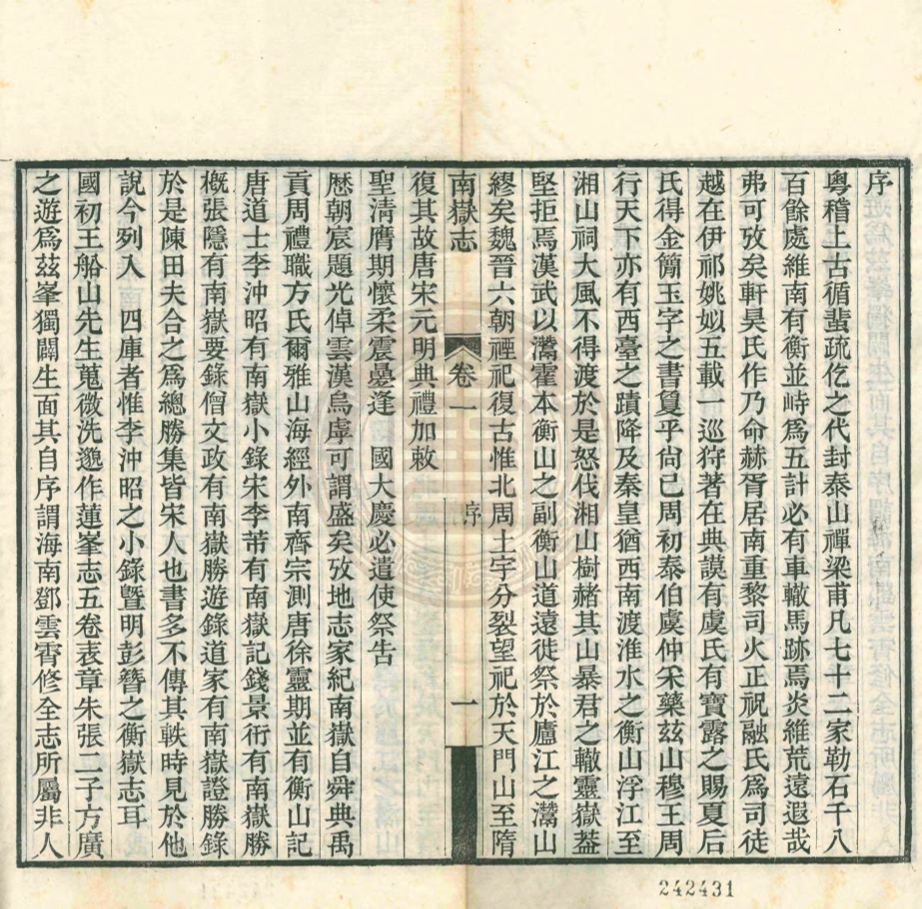 序
粵稽上古循蜚疏仡之代封泰山禪梁甫凡七十二家勒石千八
百餘處維南有衡並峙爲五計必有車轍馬跡焉炎維荒遠遐哉
弗可攷矣軒昊氏作乃命赫胥居南重黎司火正祝融氏爲司徒
越在伊祁姚姒五載一巡狩著在典謨有虞氏有寶露之賜夏后
氏得金簡玉字之書敻乎尙已周初泰伯虞仲采藥茲山穆王周
行天下亦有西臺之蹟降及秦皇猶西南渡淮水之衡山浮江至
湘山祠大風不得渡於是怒伐湘山樹赭其山暴君之轍靈嶽葢
堅拒焉漢武以灊霍本衡山之副衡山道遠徙祭於廬江之灊山
繆矣魏晉六朝禋祀復古惟北周土宇分裂望祀於天門山至隋
南嶽志 卷一 序 一
復其故唐宋元明典禮加敕
聖淸膺期懷柔震疊逢 國大慶必遣使祭告
歷朝宸題光倬雲漢烏虖可謂盛矣攷地志家紀南嶽自舜典禹
貢周禮職方氏爾雅山海經外南齊宗測唐徐靈期並有衡山記
唐道士李沖昭有南嶽小錄宋李芾有南嶽記錢景衎有南嶽勝
槪張隱有南嶽要錄僧文政有南嶽勝遊錄道家有南嶽證勝錄
於是陳田夫合之爲總勝集皆宋人也書多不傳其軼時見於他
說今列入 四庫者惟李沖昭之小錄曁明彭簪之衡嶽志耳
國初王船山先生蒐微洗邈作蓮峯志五卷表章朱張二子方廣
之遊爲茲峯獨闢生面其自序謂海南鄧雲霄修全志所屬非人
242431